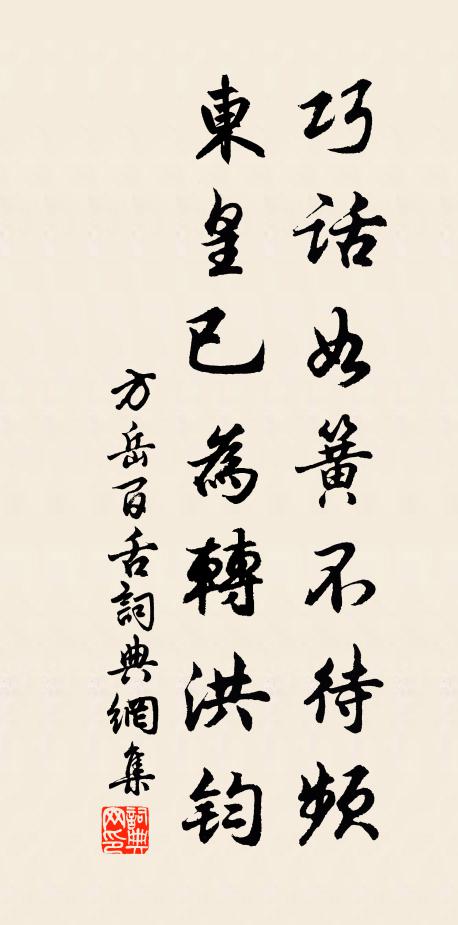 巧話如簧不待頻
東皇已為轉洪鈞
方岳百舌詞典網集
詞典网印